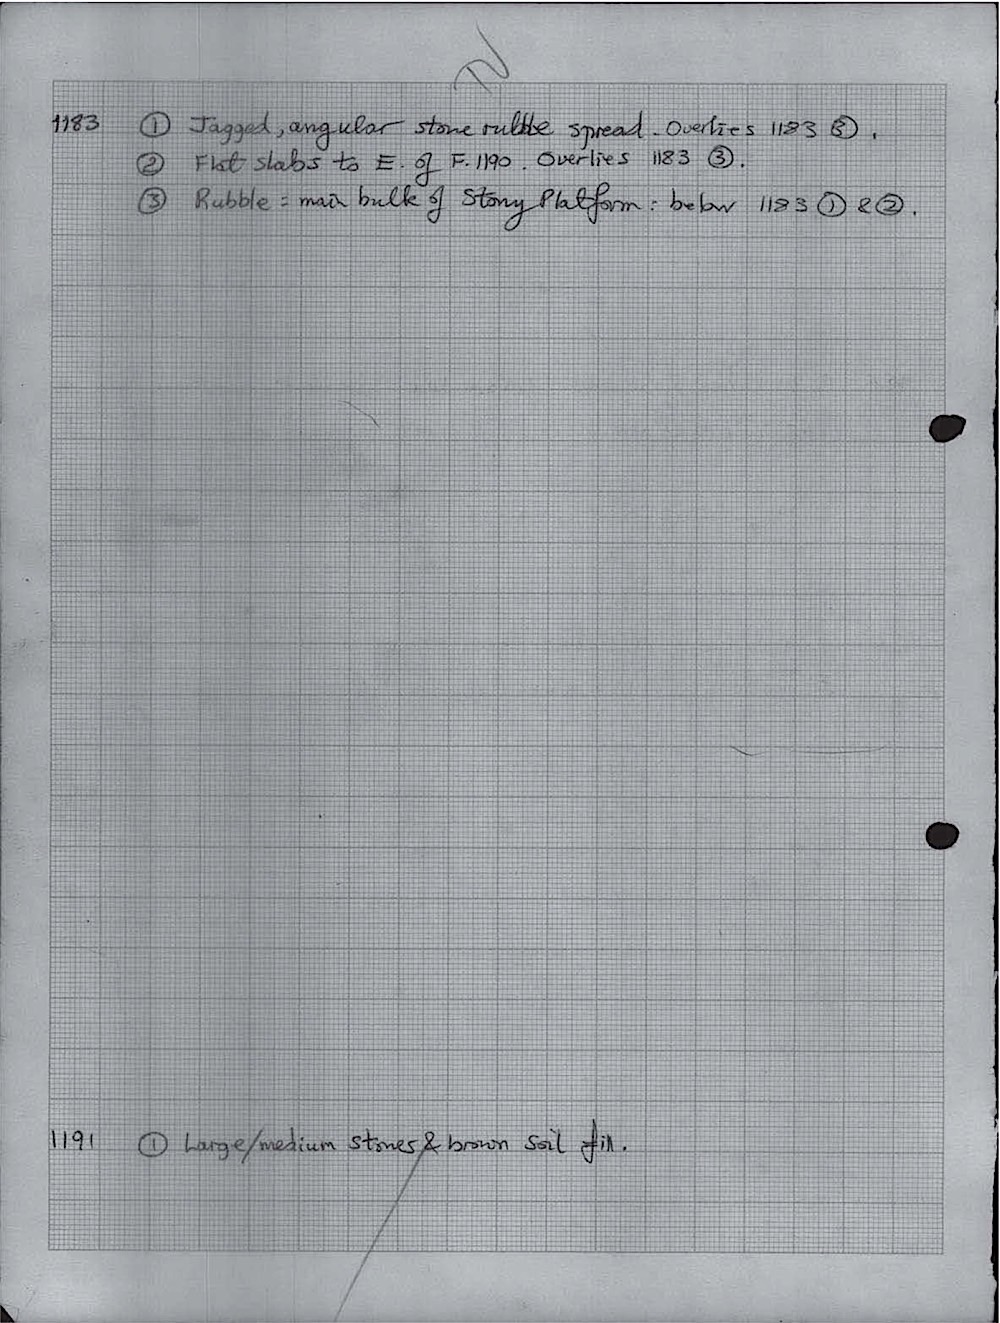 1183 ① Jagged, angular stone rubble spread. Overlies 1183 ③.
② Flat slabs to E. of F. 1190. Overlies 1183 ③.
③ Rubble = main bulk of Stony Platform: below 1183 ① & ②.
1191 ① Large/medium stones & brown soil fill.